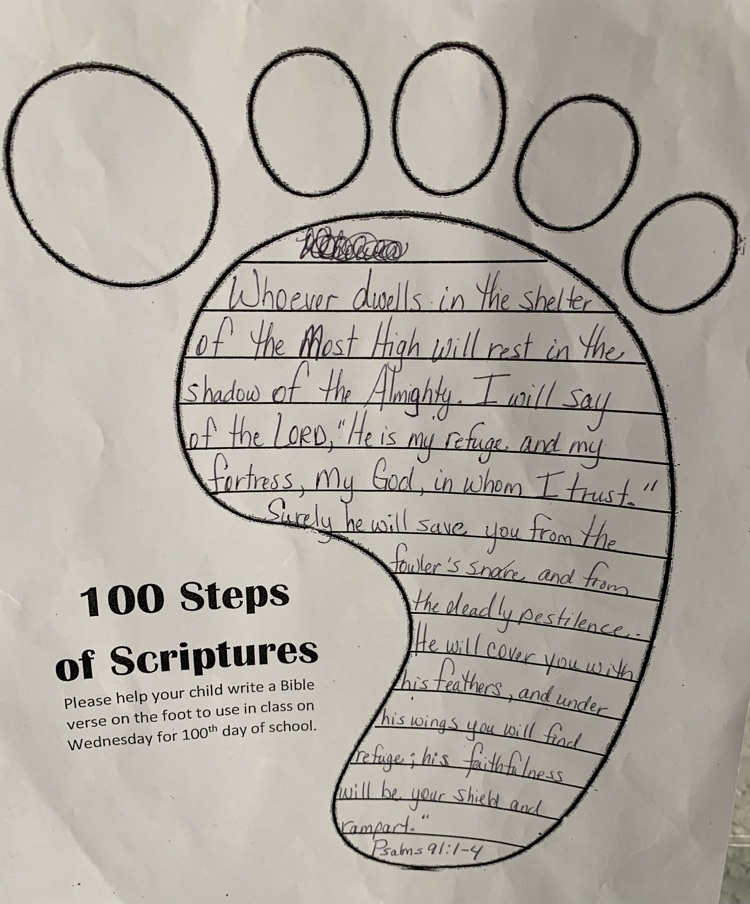 Whoever dwells in the shelter
of the Most High will rest in the
shadow of the Almighty. I will say
of the LORD, "He is my refuge and my
fortress, my God, in whom I trust."
Surely he will save you from the
fowler's snare and from
the deadly pestilence.
He will cover you with
his feathers, and under
his wings you will find
refuge; his faithfulness
will be your shield and
rampart."
Psalms 91:1-4
100 Steps
of Scriptures
Please help your child write a Bible
verse on the foot to use in class on
Wednesday for 100th day of school.